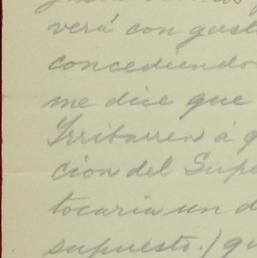 verá con gust
concediendo
me dice que
Yrribarren á q
cion del Supe
tocaria un d
supuesto.) qu